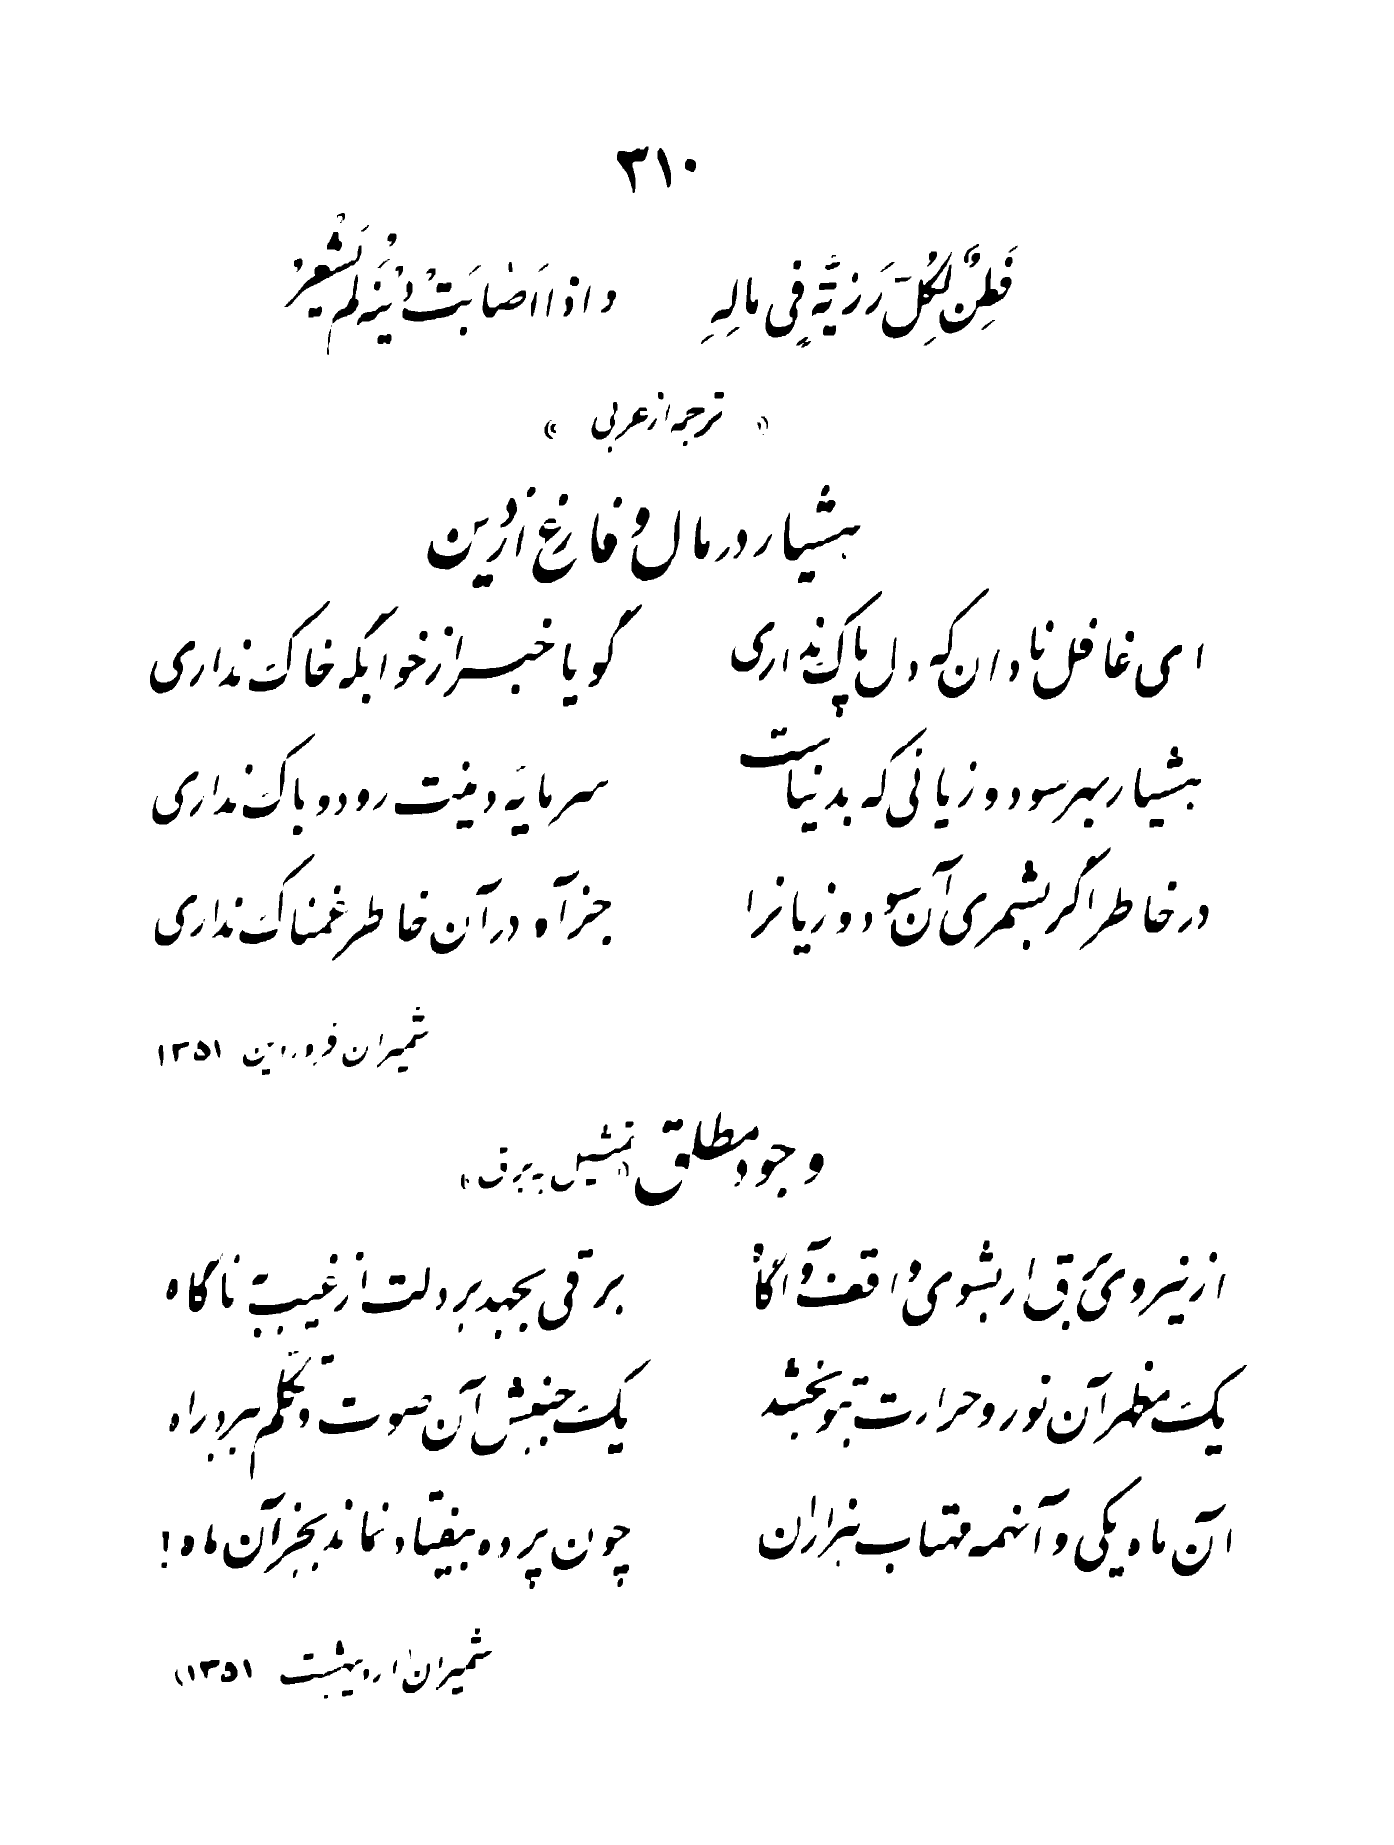 ۳۱۰
فَطِنٌ لِکُلِّ رَزِیَّةٍ فِی مالِهِ واذا اَصٰابَتْ دُیْنَهُ لَمْ یَشْعُرُ
« ترجمه از عربی »
هشیار در مال و فارغ از دین
ای غافل نادان که دل پاک نداری گویا خبر از خوابگه خاک نداری
هشیار بهر سود و زیانی که بدنیاست سرمایهٔ دینت رود و باک نداری
در خاطر اگر بشمری آن سود و زیانرا جز آه در آن خاطر غمناک نداری
شمیران فروردین ۱۳۵۱
وجود مطلق « تمثیل به برق »
از نیروی برق ار بشوی واقف و آگاه برقی بجهد بر دلت از غیب بناگاه
یک مظهر آن نور و حرارت بتو بخشد یک جنبش آن صوت و تکلم برد از راه
آن ماه یکی و آنهمه مهتاب هزاران چون پرده بیفتاد نماند بجز آن ماه!
شمیران اردیبهشت ۱۳۵۱)